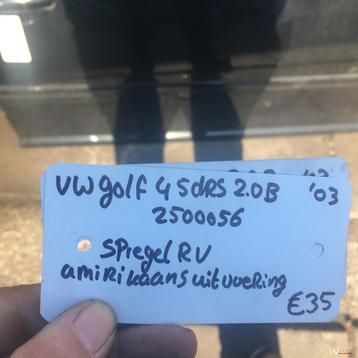 VW golf 4 5dRS 2.0B '03
2500056
SPiegel RV
amiRikaans uitvoeRing
€35